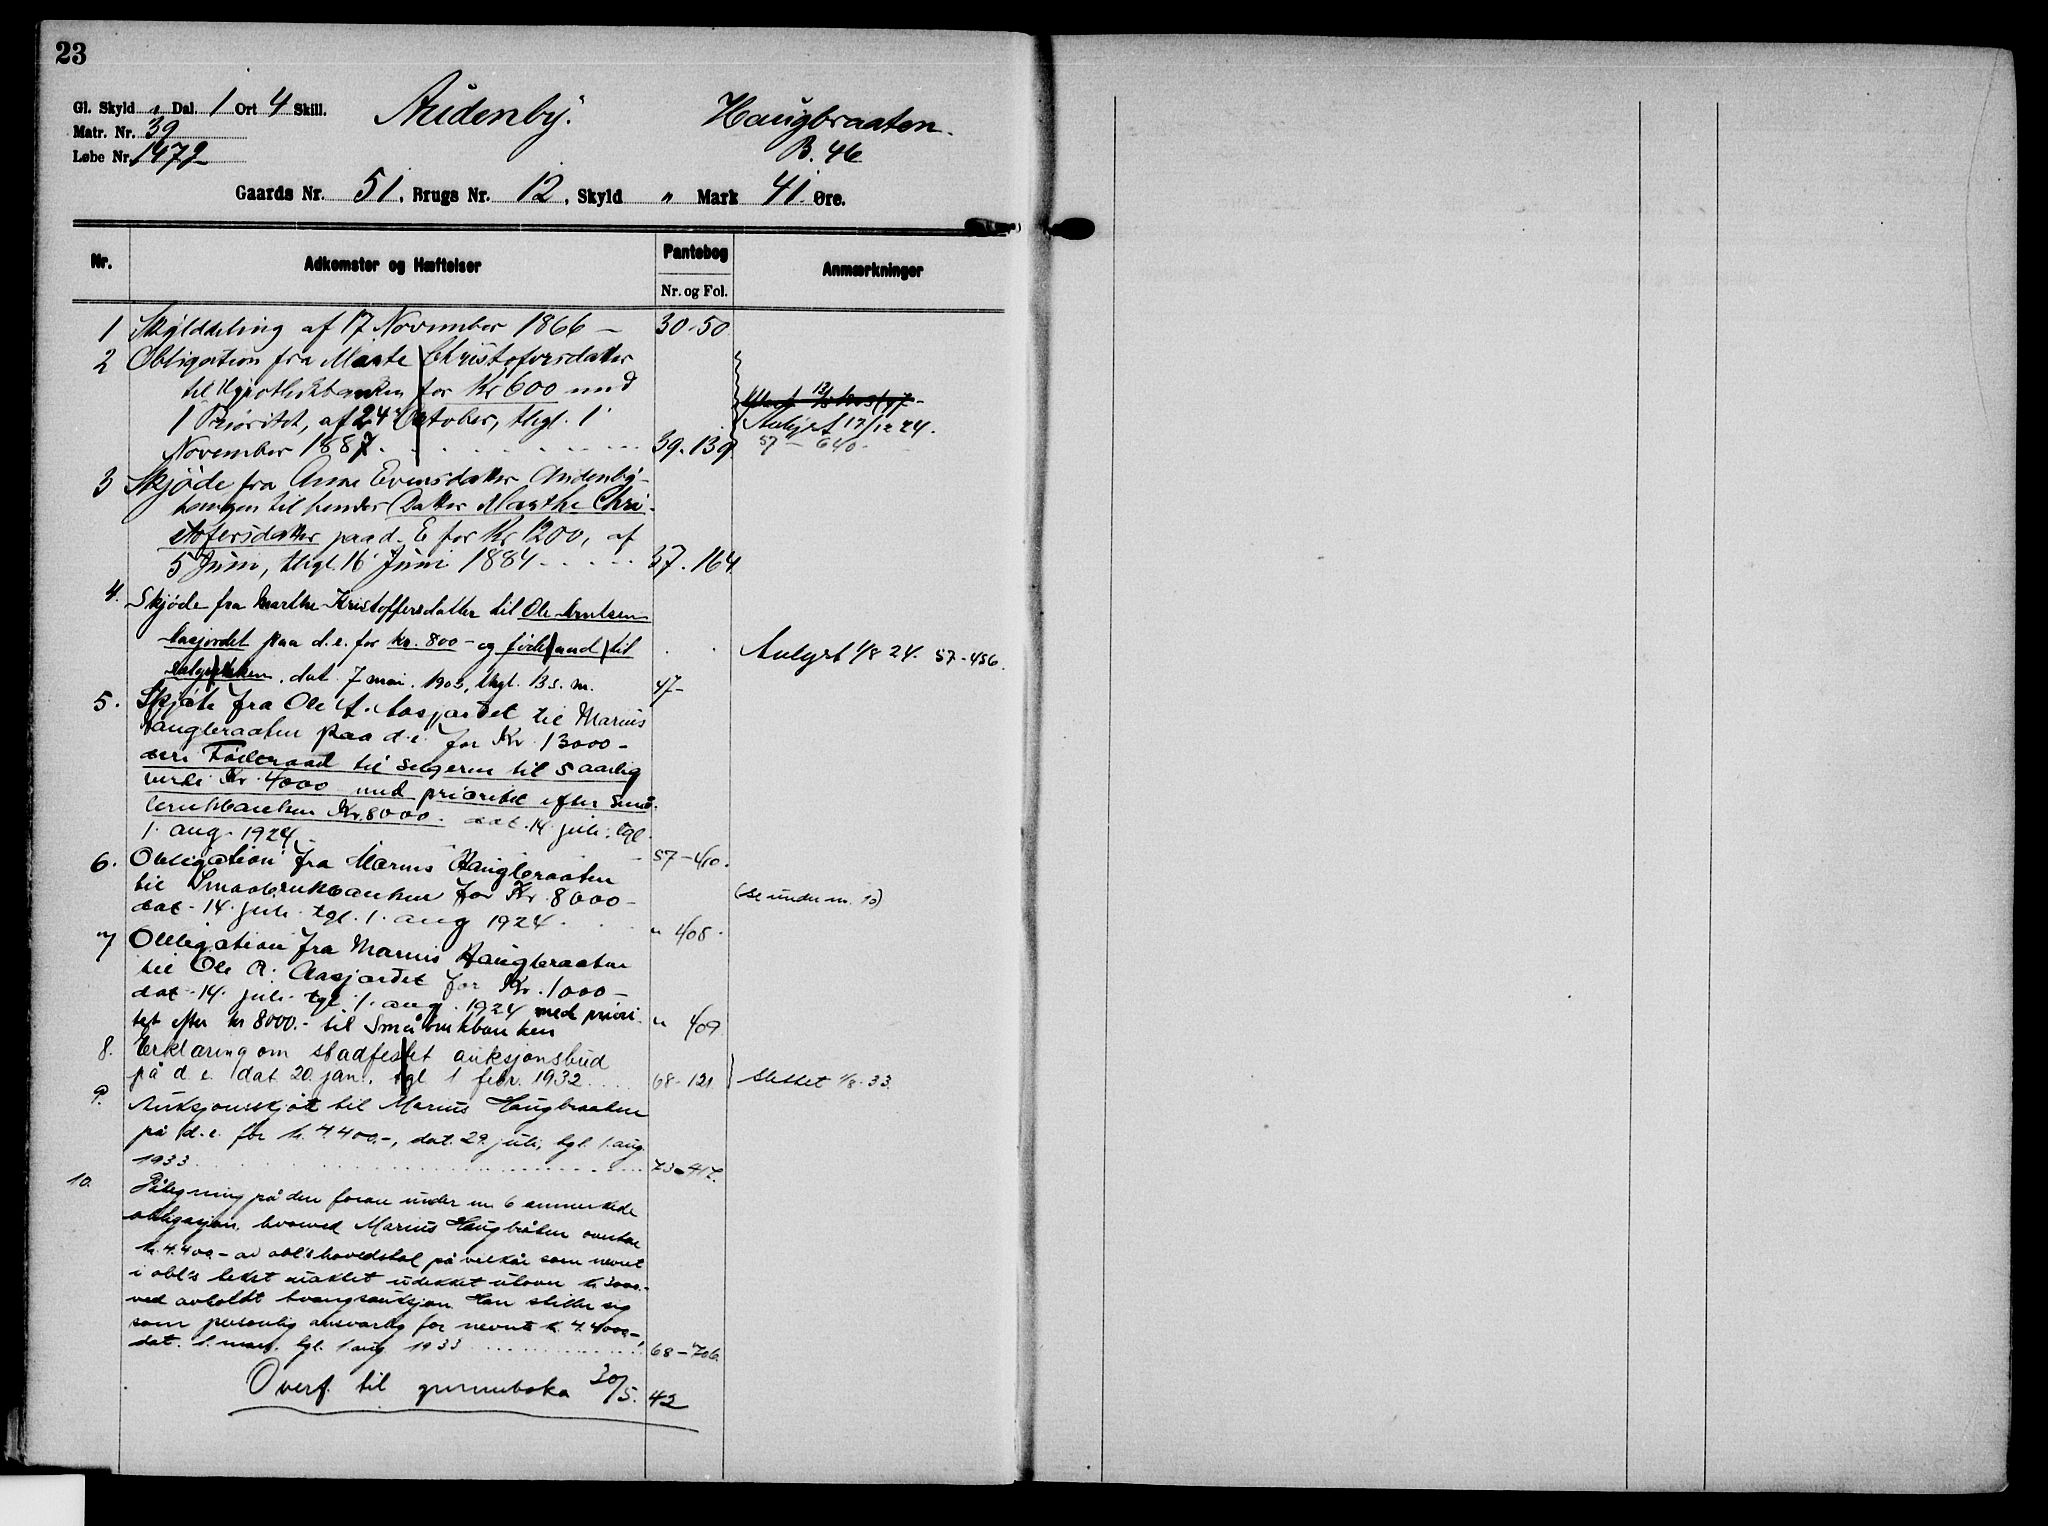 23
Gl. Skyld " Dal. 1 Ort 4 Skill.
Audenby.
Haugbraaten.
Matr. Nr. 39
B. 46
Løbe Nr. 1472
Gaards Nr. 51, Brugs Nr. 12, Skyld " Mark 41 Øre.
Nr.
Adkomster og Hæftelser
Pantebog
Nr. og Fol.
Anmærkninger
1 Skylddeling af 17 November 1866 — 30-50
2 Obligation fra Marte Christofersdatter
til Hypothekbanken for Kr 600 med
1 Prioritet, af 24 October, thgl. 1
Avlyst 17/12 24.
November 1887. 39-139 57-640.
3 Skjøde fra Anne Evensdatter Audenby-
haugen til hendes Datter Marthe Chri-
stofersdatter paa d. E for Kr 1200, af
5 Juni, thgl. 16 Juni 1884 37.164
4. Skjøde fra Marthe Kristoffersdatter til Ole Arntsen
Aasjordet paa d. e. for kr. 800 - og føderaad til
Avlyst 1/8 24. 57-456.
dat. 7 mai 1903, thgl. 13 s. m. 47-
5. Skjøte fra Ole A. Aasjordet til Marius
Haugbraaten paa d. e. for Kr. 13000-
deri Føderaad til selgeren til 5 aarlig
verdi Kr. 4000 med prioritet efter Smaa-
brukbanken Kr. 8000. dat. 14. juli. tgl.
1. aug. 1924. 57-410.
6. Obligation fra Marius Haugbraaten
til Smaabrukbanken for Kr. 8000-
(se under nr. 10)
dat. 14. juli. tgl. 1. aug 1924. " 408.
7 Obligation fra Marius Haugbraaten
til Ole A. Aasjordet for Kr. 1000-
dat. 14. juli. tgl. 1. aug. 1924 med priori-
tet efter kr 8000.- til Småbrukbanken " 409
8. Erklæring om stadfestet auksjonsbud
på d. e. dat. 20. jan. tgl 1 febr. 1932 68-121 slettet 1/8-33.
9. Auksjonsskjøte til Marius Haugbraaten
på d. e. for kr. 4.400,-, dat. 29. juli, tgl. 1. aug.
1933 73-417.
10. Påtegning på den foran under nr. 6 anmerkede
obligasjon, hvorved Marius Haugbråten overtar
kr. 4.400.- av obl's hovedstol på vilkår som nevnt
i obl's tekst udekket
ved avholdt tvangsauksjon. Han stiller sig
som personlig ansvarlig for nevnte kr. 4.400,-,
dat. 1. mars, tgl. 1 aug 1933 68-706.
Overf. til grunnboka 30/5. 42